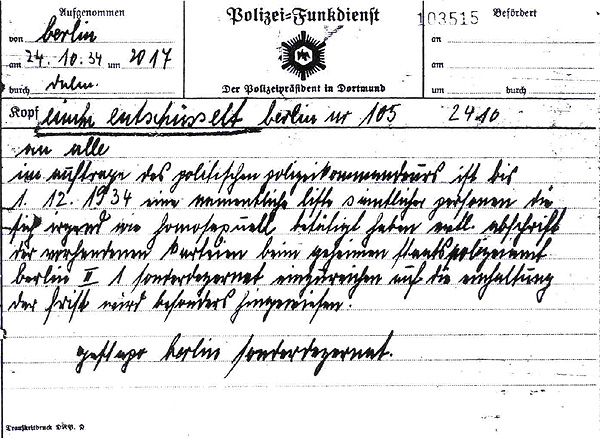 Aufgenommen
von berlin
am 24.10.34 um 2017
durch
Polizei=Funkdienst
Der Polizeipräsident in Dortmund
103515
Befördert
an
am
am um
durch
Kopf entschüsselt berlin nr 105 2410
an alle
im auftrage des politischen polizeikommandeurs ist bis
1. 12. 1934 eine namentliche liste sämtlicher personen die
sich irgend wie homosexuell betätigt haben evtl. abschrift
der vorhandenen karteien beim geheimen staatspolizeiamt
berlin II 1 sonderdezernat einzureichen auf die einhaltung
der frist wird besonders hingewiesen.
gestapo berlin sonderdezernat.